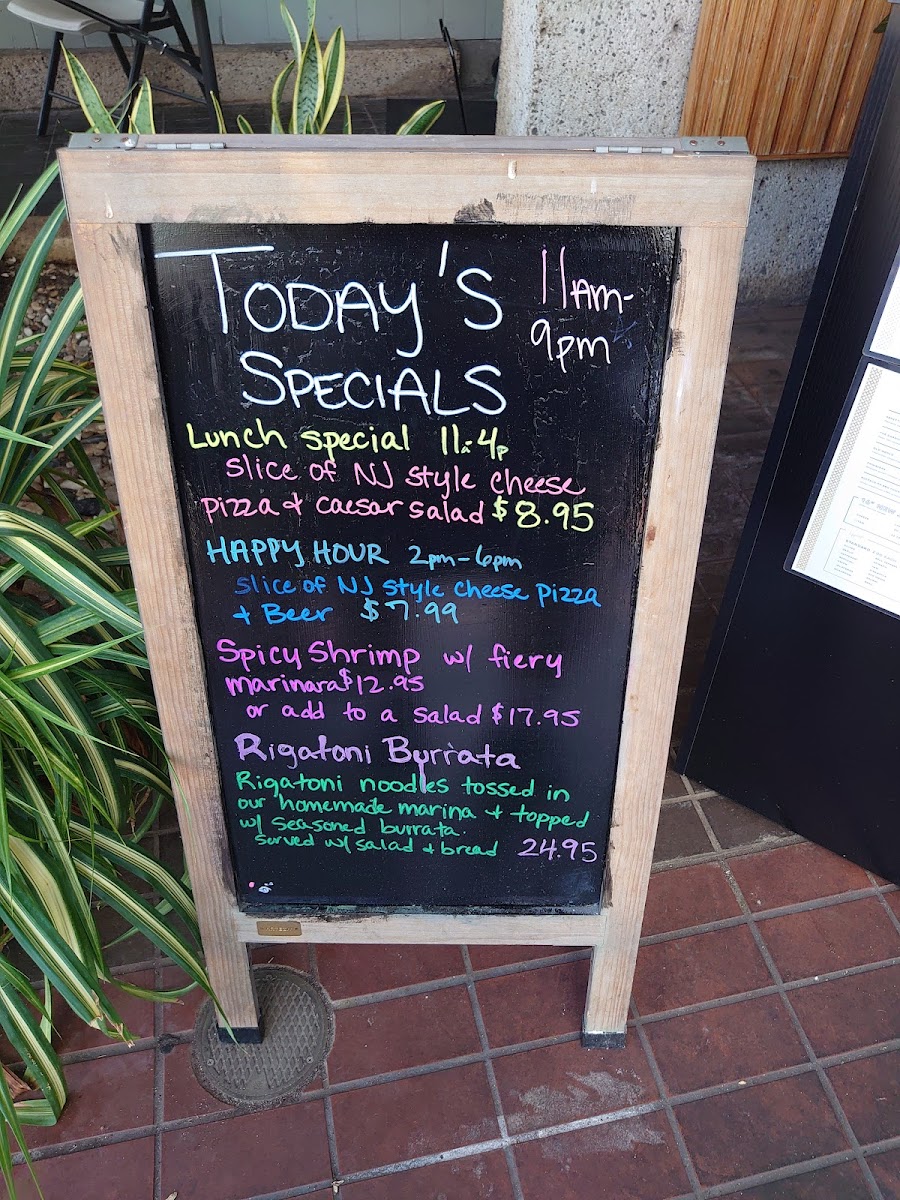 TODAY'S
SPECIALS
11am-
9pm
Lunch special 11a-4p
slice of NJ style cheese
pizza + caesar salad $8.95
HAPPY HOUR 2pm-6pm
slice of NJ style cheese pizza
+ Beer $7.99
Spicy Shrimp w/ fiery
marinara $12.95
or add to a salad $17.95
Rigatoni Burrata
Rigatoni noodles tossed in
our homemade marina + topped
w/ seasoned burrata.
served w/ salad + bread 24.95